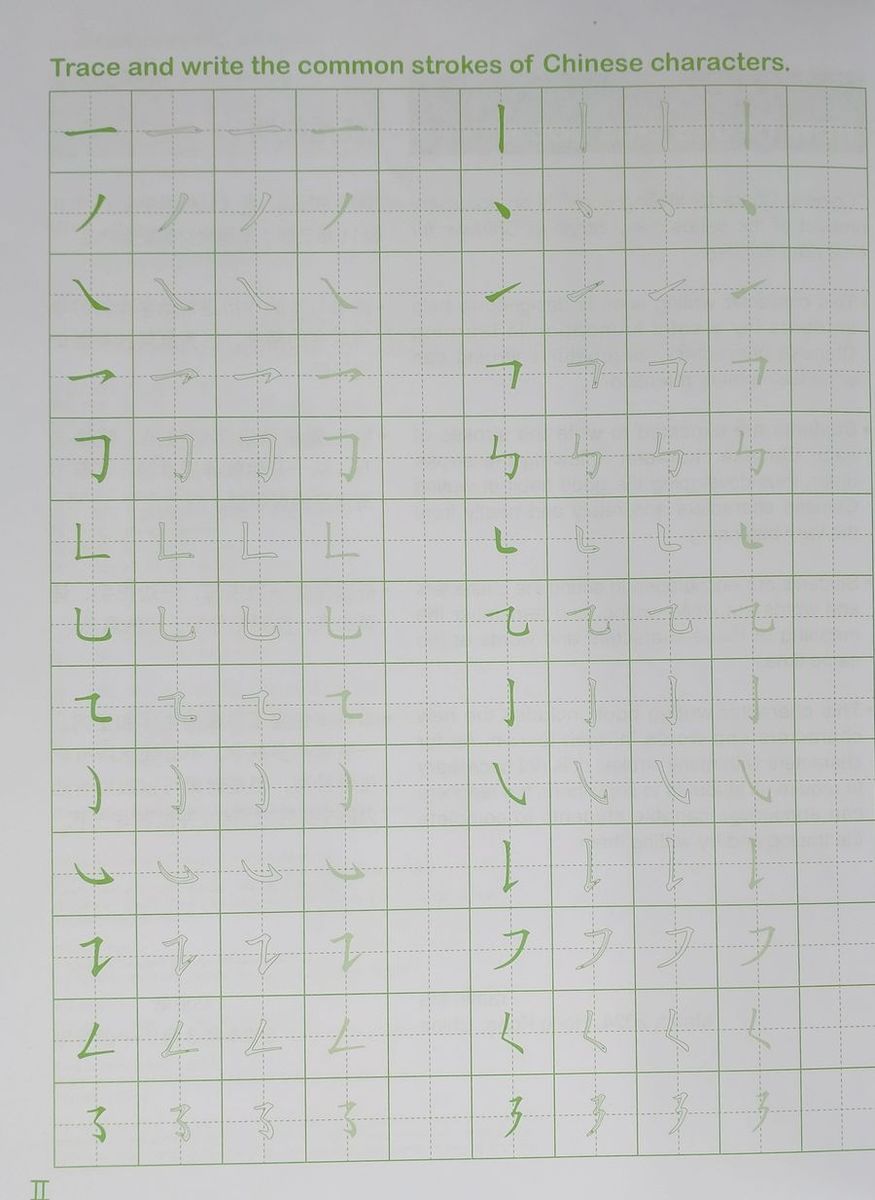 Trace and write the common strokes of Chinese characters.
一 丨
丿 丶
㇏ ㇀
㇖ ㇕
㇆ ㇉
㇗ ㇄
㇟ ㇈
㇍ 亅
㇁ ㇂
㇃ ㇙
㇊ ㇇
㇜ ㇛
㇌ ㇋
II